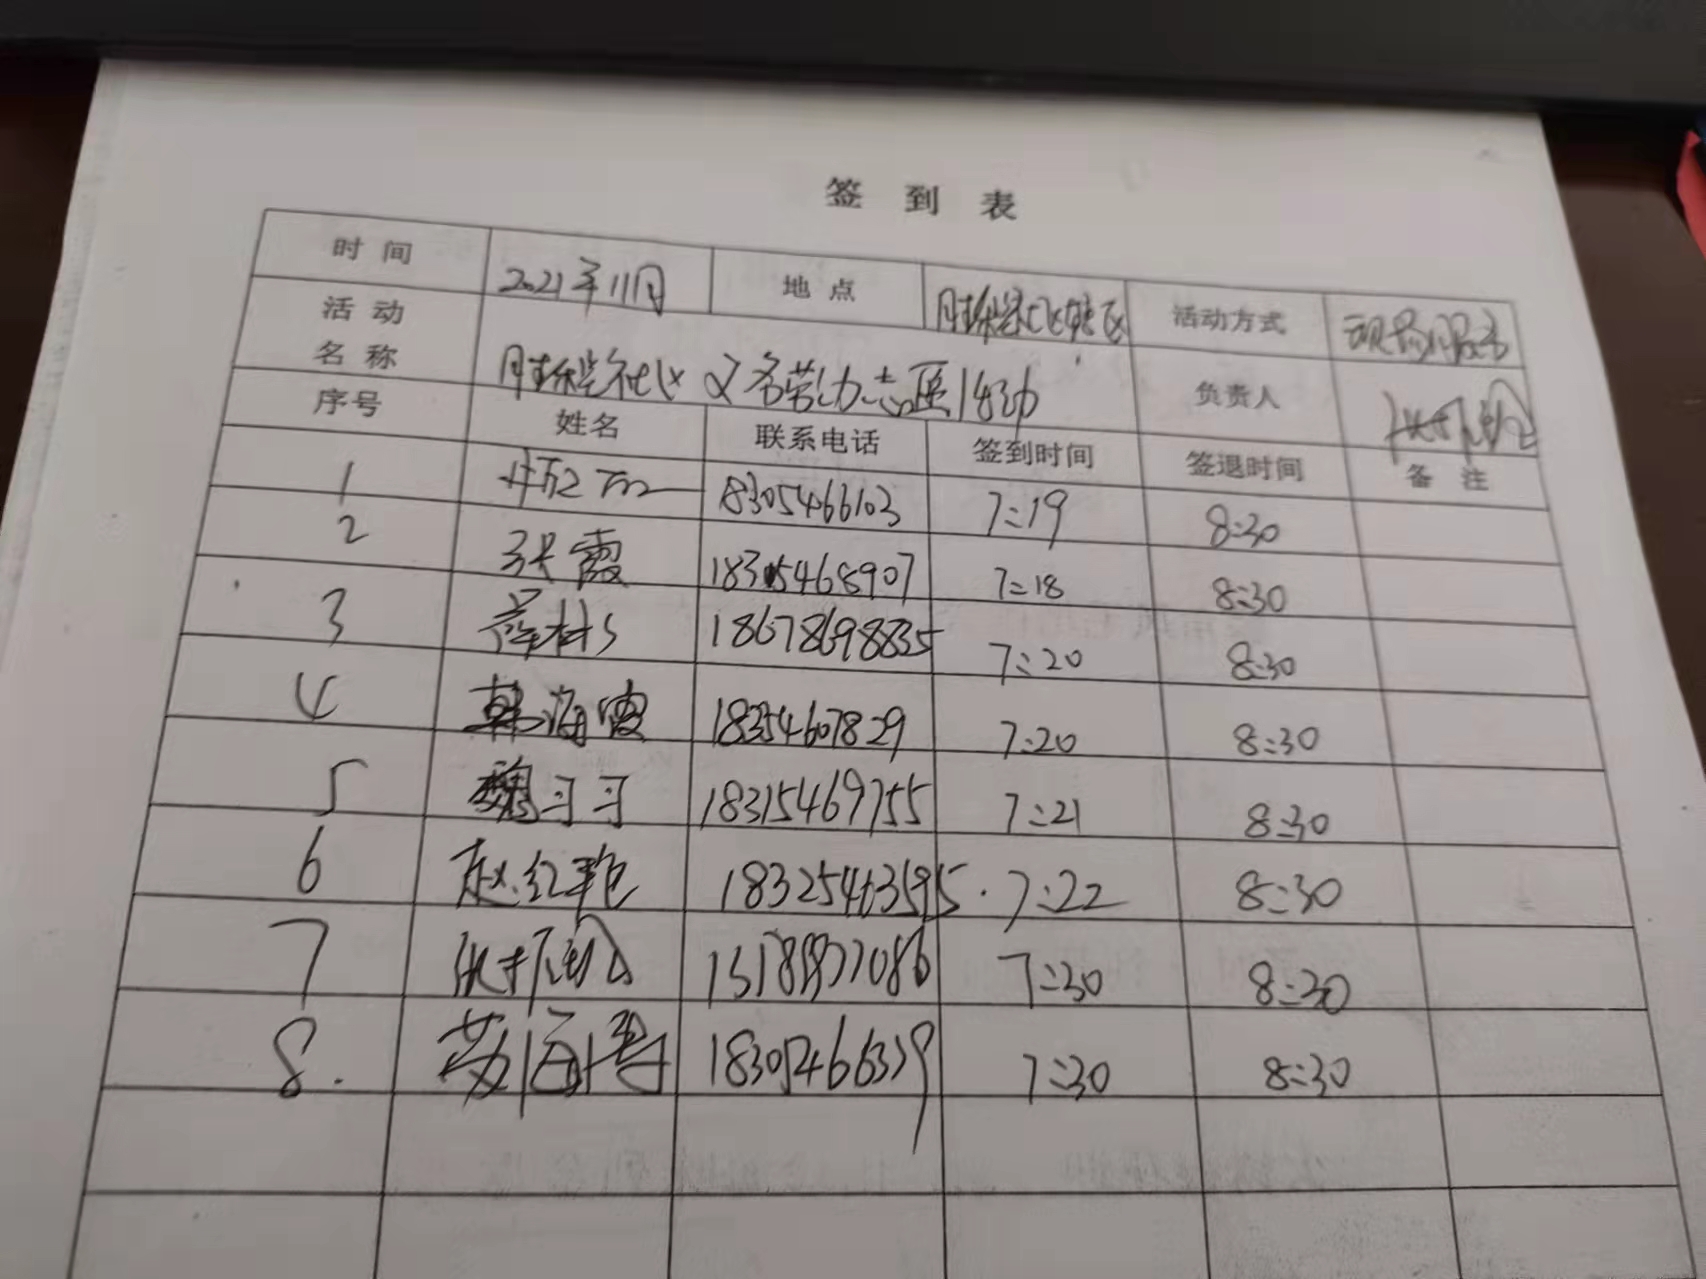 签 到 表
时 间 2021年11月 地 点 活动方式 现场服务
活 动
名 称 义务劳动志愿活动 负责人
序号 姓名 联系电话 签到时间 签退时间 备 注
1 18305466103 7:19 8:30
2 张霞 18305468907 7:18 8:30
3 18678698835 7:20 8:30
4 韩海霞 18354607829 7:20 8:30
5 魏习习 18315469755 7:21 8:30
6 赵红艳 18325463595 7:22 8:30
7 7:30 8:30
8. 7:30 8:30